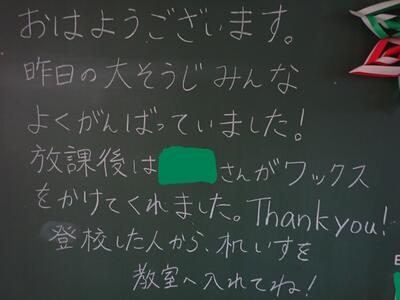 おはようございます。
昨日の大そうじみんな
よくがんばっていました!
放課後は さんがワックス
をかけてくれました。Thank you!
登校した人から、机いすを
教室へ入れてね!